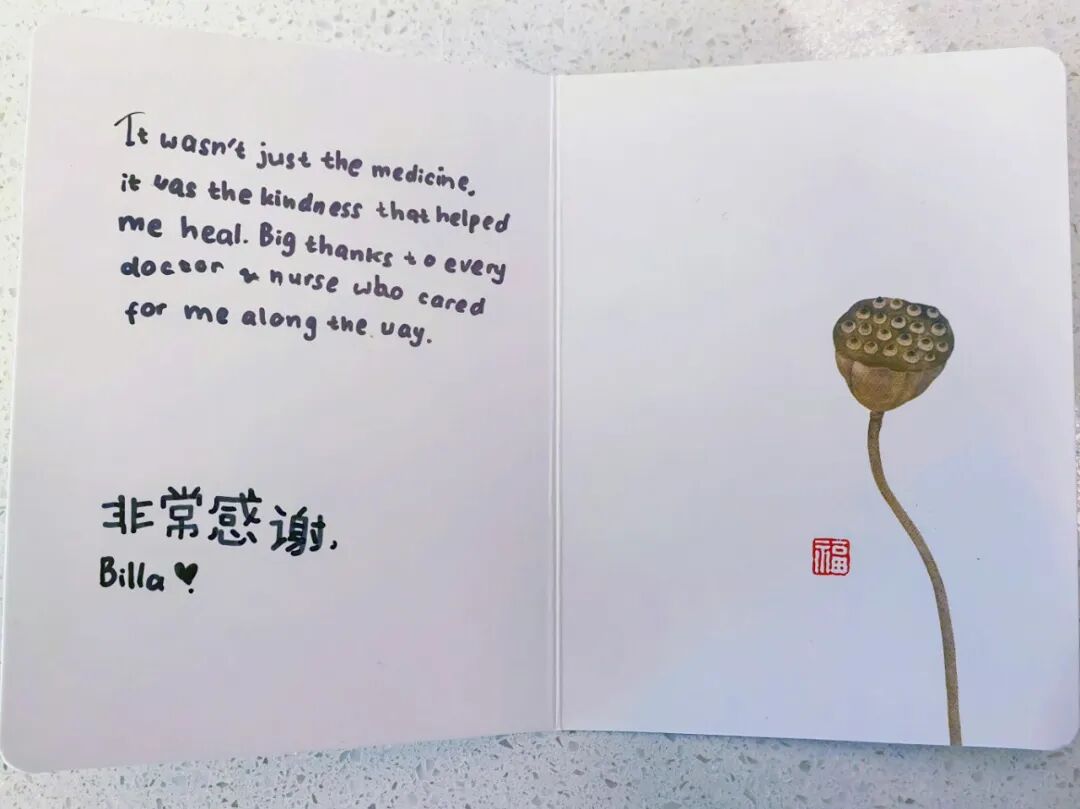 It wasn't just the medicine,
it was the kindness that helped
me heal. Big thanks to every
doctor & nurse who cared
for me along the way.
非常感谢,
Billa ♥
福